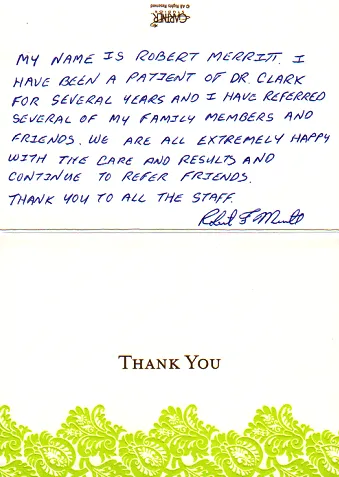 GARTNER
STUDIOS
© All Rights Reserved
MY NAME IS ROBERT MERRITT. I
HAVE BEEN A PATIENT OF DR. CLARK
FOR SEVERAL YEARS AND I HAVE REFERRED
SEVERAL OF MY FAMILY MEMBERS AND
FRIENDS. WE ARE ALL EXTREMELY HAPPY
WITH THE CARE AND RESULTS AND
CONTINUE TO REFER FRIENDS.
THANK YOU TO ALL THE STAFF.
Robert F Merritt
THANK YOU